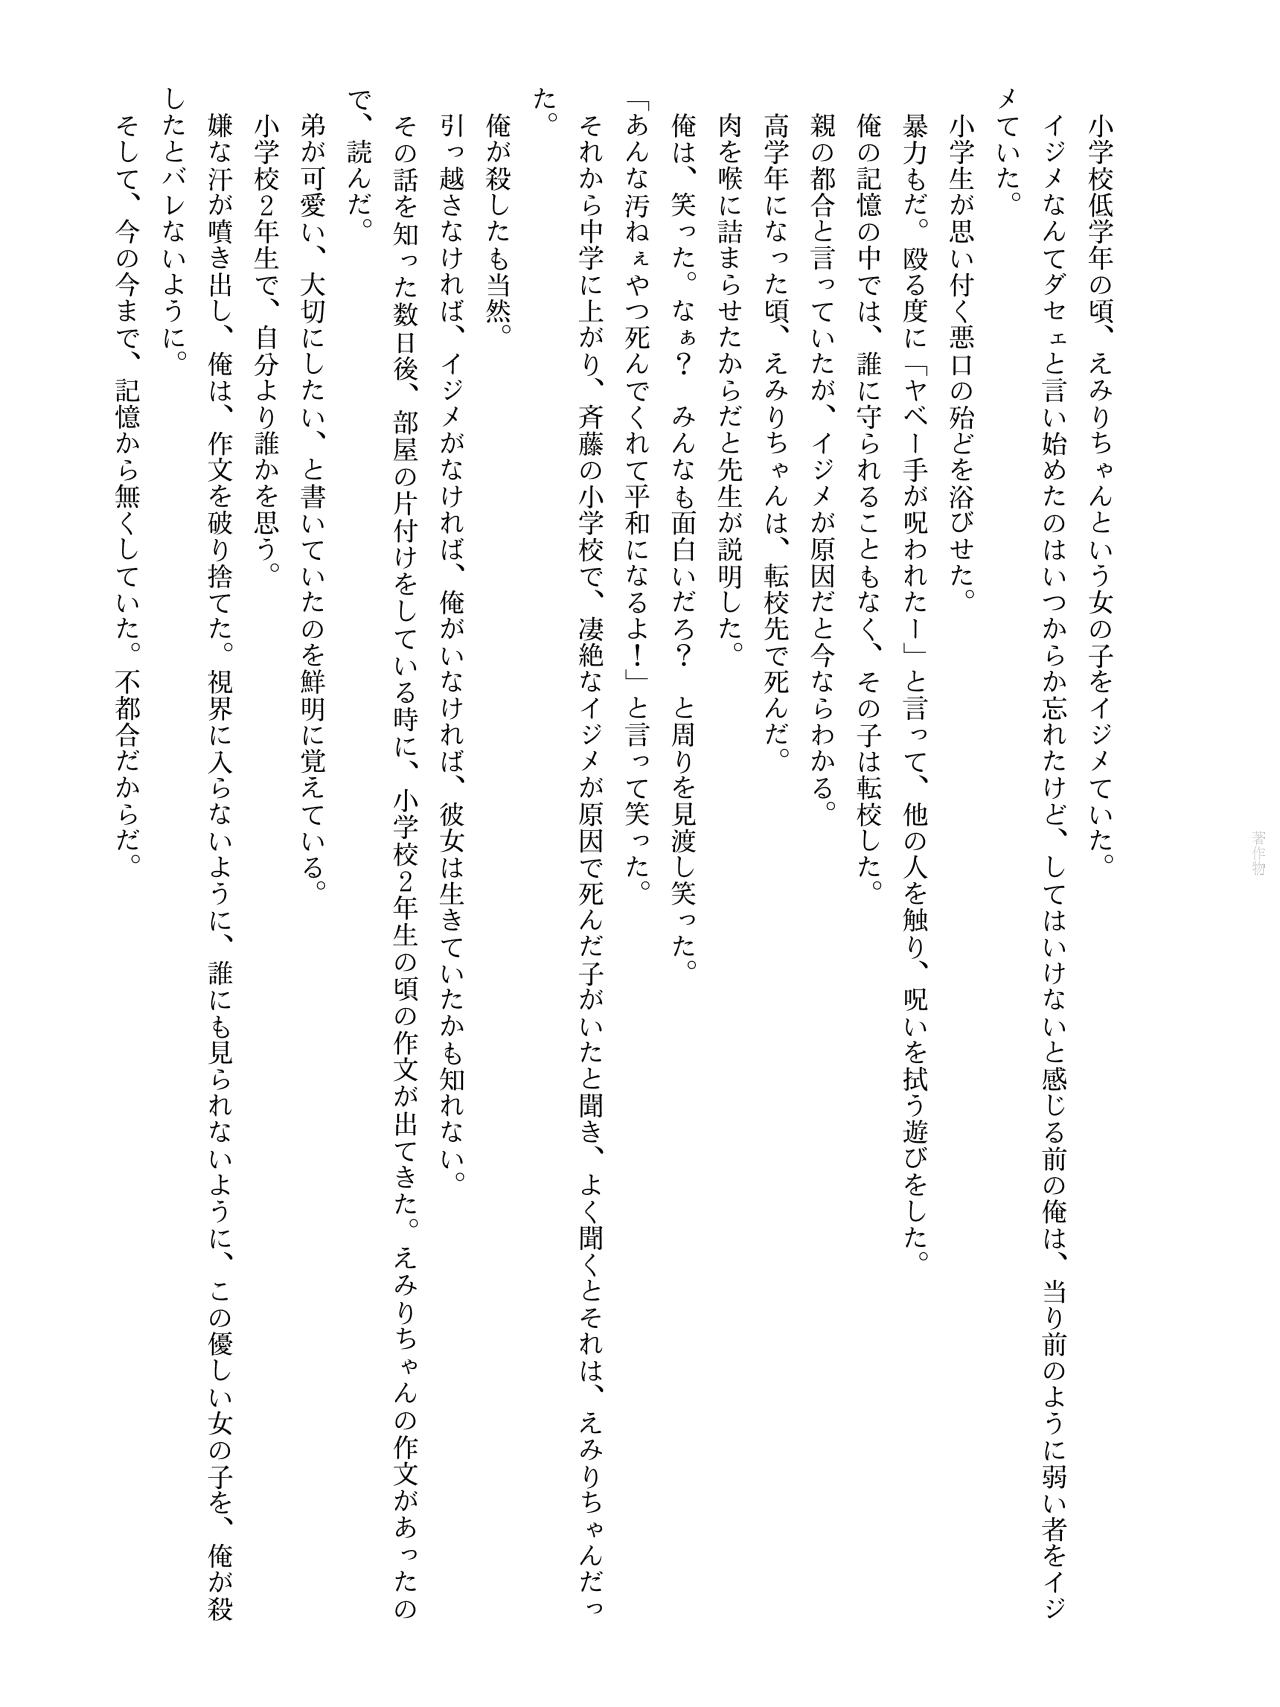 小学校低学年の頃、えみりちゃんという女の子をイジメていた。
　イジメなんてダセェと言い始めたのはいつからか忘れたけど、してはいけないと感じる前の俺は、当り前のように弱い者をイジ
メていた。
　小学生が思い付く悪口の殆どを浴びせた。
　暴力もだ。殴る度に「ヤベー手が呪われたー」と言って、他の人を触り、呪いを拭う遊びをした。
　俺の記憶の中では、誰に守られることもなく、その子は転校した。
　親の都合と言っていたが、イジメが原因だと今ならわかる。
　高学年になった頃、えみりちゃんは、転校先で死んだ。
　肉を喉に詰まらせたからだと先生が説明した。
　俺は、笑った。なぁ？　みんなも面白いだろ？　と周りを見渡し笑った。
「あんな汚ねぇやつ死んでくれて平和になるよ！」と言って笑った。
　それから中学に上がり、斉藤の小学校で、凄絶なイジメが原因で死んだ子がいたと聞き、よく聞くとそれは、えみりちゃんだっ
た。
　俺が殺したも当然。
　引っ越さなければ、イジメがなければ、俺がいなければ、彼女は生きていたかも知れない。
　その話を知った数日後、部屋の片付けをしている時に、小学校２年生の頃の作文が出てきた。えみりちゃんの作文があったの
で、読んだ。
　弟が可愛い、大切にしたい、と書いていたのを鮮明に覚えている。
　小学校２年生で、自分より誰かを思う。
　嫌な汗が噴き出し、俺は、作文を破り捨てた。視界に入らないように、誰にも見られないように、この優しい女の子を、俺が殺
したとバレないように。
　そして、今の今まで、記憶から無くしていた。不都合だからだ。
著作物